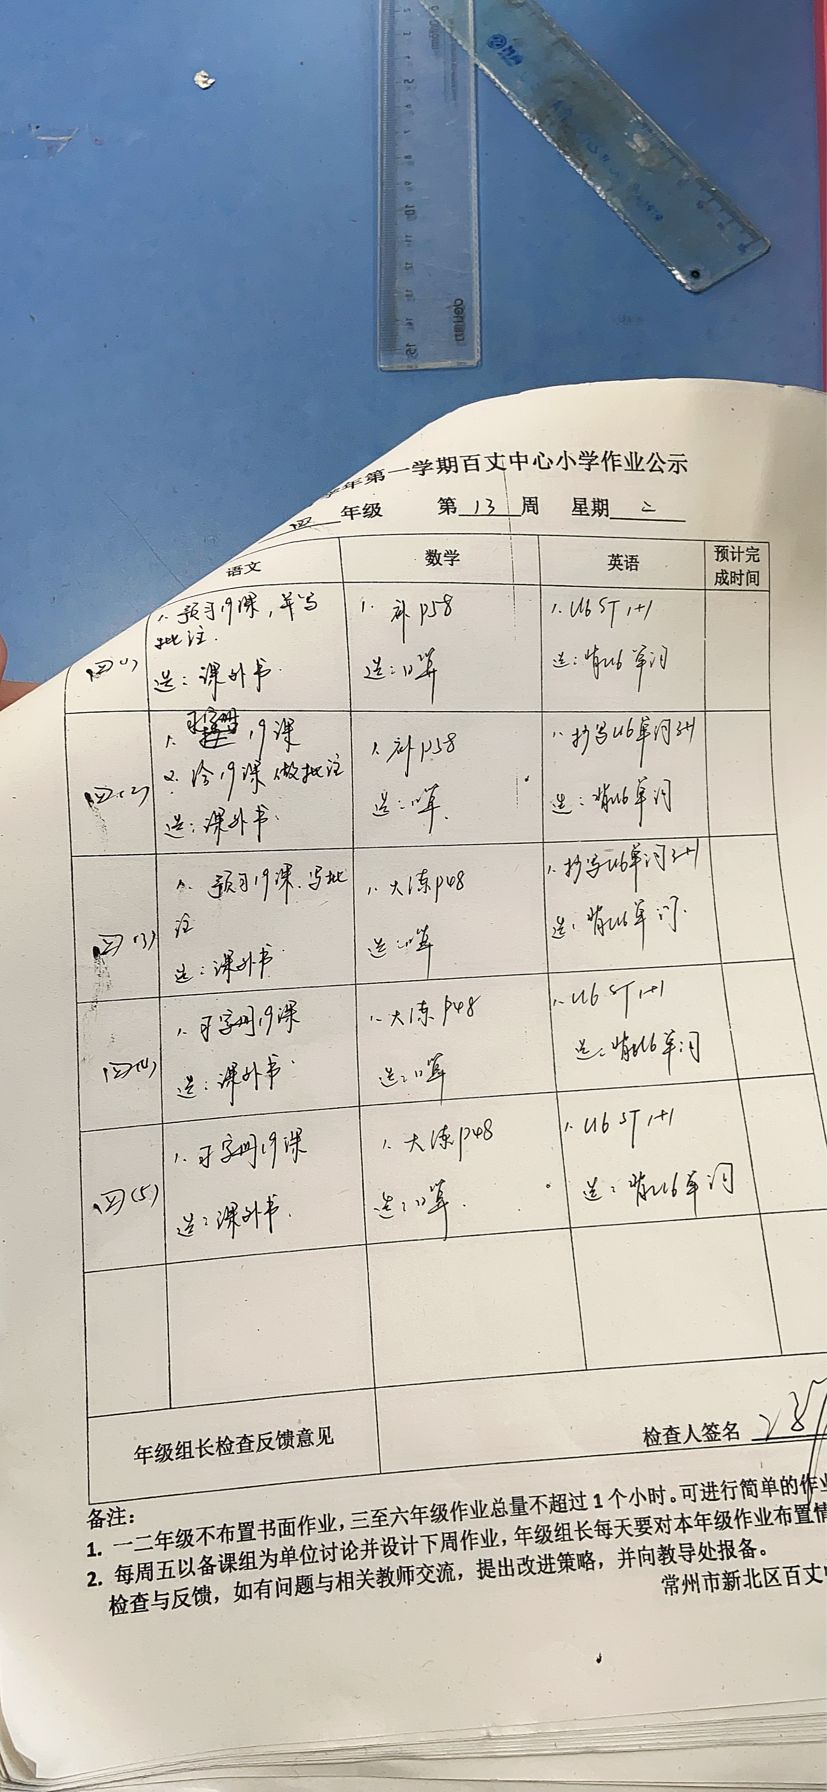 学年第一学期百丈中心小学作业公示
四 年级 第 13 周 星期 二
语文 数学 英语 预计完成时间
四(1)
1. 预习19课，并写
批注.
选：课外书.
1. 补P58
选：口算
1. U6 ST 1+1
选：背U6单词
四(2)
1. 习字册 19课
2. 给19课做批注
选：课外书.
1. 补P58
选：口算.
1. 抄写U6单词3+1
选：背U6单词
四(3)
1. 预习19课.写批
注
选：课外书.
1. 大练P48
选：口算
1. 抄写U6单词3+1
选：背U6单词.
四(4)
1. 习字册19课
选：课外书.
1. 大练P48
选：口算
1. U6 ST 1+1
选：背U6单词
四(5)
1. 习字册19课
选：课外书.
1. 大练P48
选：口算.
1. U6 ST 1+1
选：背U6单词
年级组长检查反馈意见
检查人签名
备注：
1. 一二年级不布置书面作业，三至六年级作业总量不超过1个小时。可进行简单的作业
2. 每周五以备课组为单位讨论并设计下周作业，年级组长每天要对本年级作业布置情
检查与反馈，如有问题与相关教师交流，提出改进策略，并向教导处报备。
常州市新北区百丈
deli